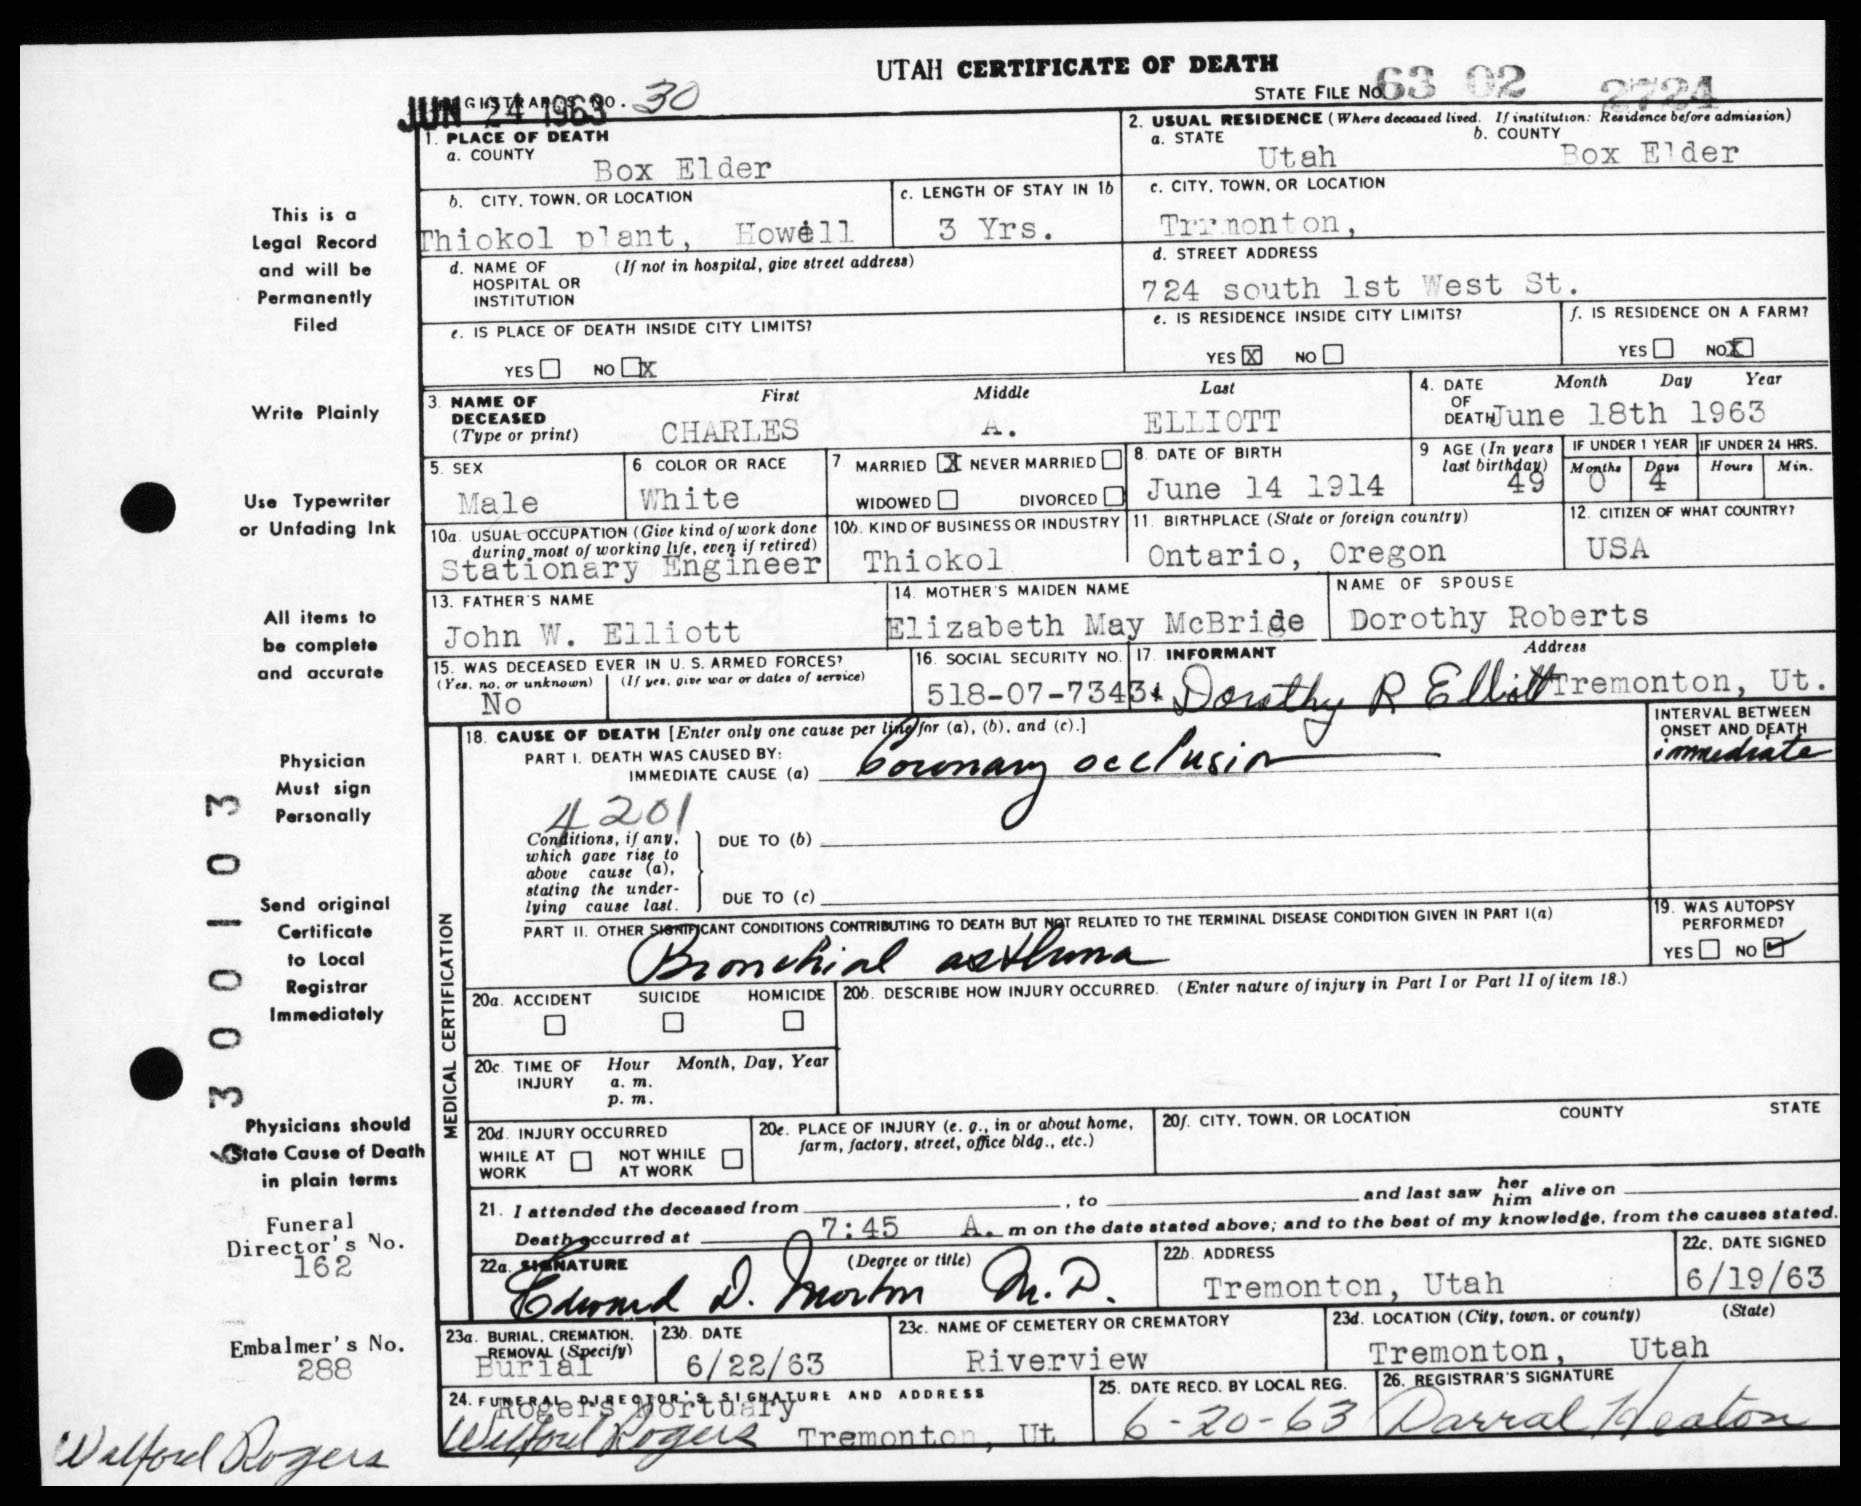 UTAH CERTIFICATE OF DEATH
JUN 24 1963
REGISTRAR'S NO. 30
STATE FILE NO. 63 02 2724
1. PLACE OF DEATH
a. COUNTY
Box Elder
b. CITY, TOWN, OR LOCATION
Thiokol plant, Howell
c. LENGTH OF STAY IN 1b
3 Yrs.
d. NAME OF HOSPITAL OR INSTITUTION (If not in hospital, give street address)
e. IS PLACE OF DEATH INSIDE CITY LIMITS?
YES NO X
2. USUAL RESIDENCE (Where deceased lived. If institution: Residence before admission)
a. STATE
Utah
b. COUNTY
Box Elder
c. CITY, TOWN, OR LOCATION
Trrmonton,
d. STREET ADDRESS
724 south 1st West St.
e. IS RESIDENCE INSIDE CITY LIMITS?
YES X NO
f. IS RESIDENCE ON A FARM?
YES NO X
3. NAME OF DECEASED (Type or print)
First Middle Last
CHARLES A. ELLIOTT
4. DATE OF DEATH
Month Day Year
June 18th 1963
5. SEX
Male
6. COLOR OR RACE
White
7. MARRIED X NEVER MARRIED
WIDOWED DIVORCED
8. DATE OF BIRTH
June 14 1914
9. AGE (In years last birthday)
49
IF UNDER 1 YEAR
Months Days
0 4
IF UNDER 24 HRS.
Hours Min.
10a. USUAL OCCUPATION (Give kind of work done during most of working life, even if retired)
Stationary Engineer
10b. KIND OF BUSINESS OR INDUSTRY
Thiokol
11. BIRTHPLACE (State or foreign country)
Ontario, Oregon
12. CITIZEN OF WHAT COUNTRY?
USA
13. FATHER'S NAME
John W. Elliott
14. MOTHER'S MAIDEN NAME
Elizabeth May McBride
NAME OF SPOUSE
Dorothy Roberts
15. WAS DECEASED EVER IN U. S. ARMED FORCES?
(Yes, no, or unknown) (If yes, give war or dates of service)
No
16. SOCIAL SECURITY NO.
518-07-7343
17. INFORMANT Address
Dorothy R Elliott Tremonton, Ut.
18. CAUSE OF DEATH [Enter only one cause per line for (a), (b), and (c).]
INTERVAL BETWEEN ONSET AND DEATH
PART I. DEATH WAS CAUSED BY:
IMMEDIATE CAUSE (a) Coronary occlusion
immediate
4201
Conditions, if any, which gave rise to above cause (a), stating the underlying cause last.
DUE TO (b)
DUE TO (c)
PART II. OTHER SIGNIFICANT CONDITIONS CONTRIBUTING TO DEATH BUT NOT RELATED TO THE TERMINAL DISEASE CONDITION GIVEN IN PART I(a)
Bronchial asthma
19. WAS AUTOPSY PERFORMED?
YES NO ✓
MEDICAL CERTIFICATION
20a. ACCIDENT SUICIDE HOMICIDE
20b. DESCRIBE HOW INJURY OCCURRED. (Enter nature of injury in Part I or Part II of item 18.)
20c. TIME OF INJURY Hour Month, Day, Year
a. m.
p. m.
20d. INJURY OCCURRED
WHILE AT WORK NOT WHILE AT WORK
20e. PLACE OF INJURY (e. g., in or about home, farm, factory, street, office bldg., etc.)
20f. CITY, TOWN, OR LOCATION COUNTY STATE
21. I attended the deceased from , to and last saw her him alive on
Death occurred at 7:45 A. m on the date stated above; and to the best of my knowledge, from the causes stated.
22a. SIGNATURE (Degree or title)
Edward D. Morton M.D.
22b. ADDRESS
Tremonton, Utah
22c. DATE SIGNED
6/19/63
23a. BURIAL, CREMATION, REMOVAL (Specify)
Burial
23b. DATE
6/22/63
23c. NAME OF CEMETERY OR CREMATORY
Riverview
23d. LOCATION (City, town, or county) (State)
Tremonton, Utah
24. FUNERAL DIRECTOR'S SIGNATURE AND ADDRESS
Rogers Mortuary
Walford Rogers Tremonton, Ut
25. DATE RECD. BY LOCAL REG.
6-20-63
26. REGISTRAR'S SIGNATURE
Darral Heaton
This is a
Legal Record
and will be
Permanently
Filed
Write Plainly
Use Typewriter
or Unfading Ink
All items to
be complete
and accurate
Physician
Must sign
Personally
Send original
Certificate
to Local
Registrar
Immediately
Physicians should
State Cause of Death
in plain terms
300103
Funeral
Director's No.
162
Embalmer's No.
288
Walford Rogers